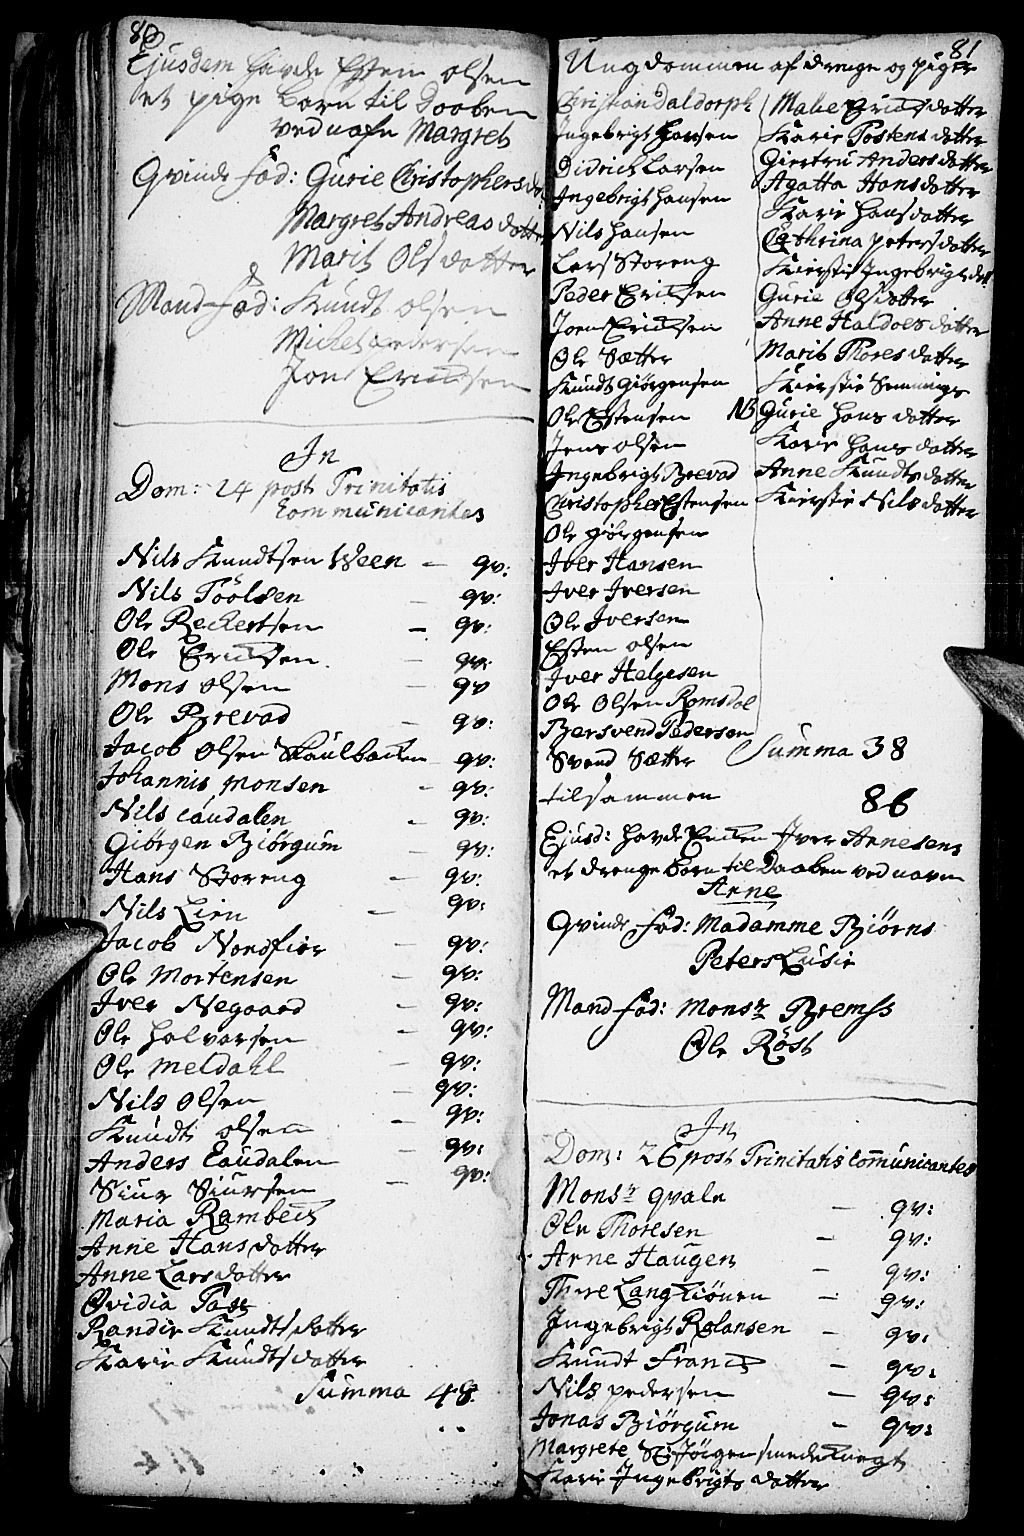 80
Ejusdem hafde Esten olsen
et pige barn til Daaben
ved nafn Margret
Qvinde Fad: Gurie Christophersd:
Margret Andreas dotter
Marit Ols dotter
Mand-Fad: Knudt olsen
Michel Pedersen
Jon Ericksen
In
Dom: 24 post Trinitatis
Communicantes
Nils Knudtsen Ween - qv:
Nils Töölsen - qv:
Ole Reckertsen - qv:
Ole Ericksen - qv:
Mons olsen - qv
Ole Brevad - qv:
Jacob Olsen Skaulbacken qv:
Johannis Monsen - qv:
Nils Eaudalen - qv:
Giörgen Biörgum - qv:
Hans Storeng - qv:
Nils Lien - qv:
Jacob Nordfier qv:
Ole Mortensen - qv:
Iver Negaard - qv:
Ole Halvorsen - qv:
Ole Meldahl - qv:
Nils Olsen - qv:
Knudt olsen - qv:
Anders Eaudalen - qv:
Siur Siursen - qv:
Maria Rambeck
Anne Hans dotter
Anne Lars dotter
Ovidia
Randie Knudts dotter
Karie Knudts dotter
Summa 48.
81
Ungdommen af drenge og piger
Christian Daldorph
Ingebrigt Hansen
Didrich Larsen
Ingebrigt Hansen
Nils Hansen
Lars Storeng
Peder Ericksen
Joen Ericksen
Ole Sætter
Knudt Giörgensen
Ole Estensen
Jens olsen
Ingebrigt Brevad
Christopher Estensen
Ole giörgensen
Iver Hansen
Iver Iversen
Ole Iversen
Esten olsen
Iver Helgesen
Ole Olsen Romsdal
Bersvend Pedersen
Svend Sætter
Malie Ericks datter
Karie Postens datter
Giertru Anders datter
Agatta Hans datter
Karie Hans datter
Cathrina Peters datter
Kierstie Ingebrigts dat:
Gurie Ols datter
Anne Haldoes datter
Marit Thores datter
Kierstie Semmings
NB Gurie Hans datter
Karie Hans datter
Anne Knudts datter
Kierstie Nils datter
Summa 38
tilsammen 86
Ejusd: hafde Iver Arnesens
et drengebarn til Daaben ved navn
Arne
Qvinde Fad: Madamme Biörns
Peters Lusie
Mand Fad: Monsr Bremss
Ole Röst
In
Dom: 26 post Trinitatis Communicantes
Monsr qvale - qv:
Ole Thoresen - qv:
Arne Haugen - qv:
Thore Langkiönen - qv:
Ingebrigt Rolansen - qv:
Knudt Franck - qv:
Nils pedersen - qv:
Jonas Biörgum - qv:
Margrete St: Jörgen smedeknegt
Karie Ingebrigts datter